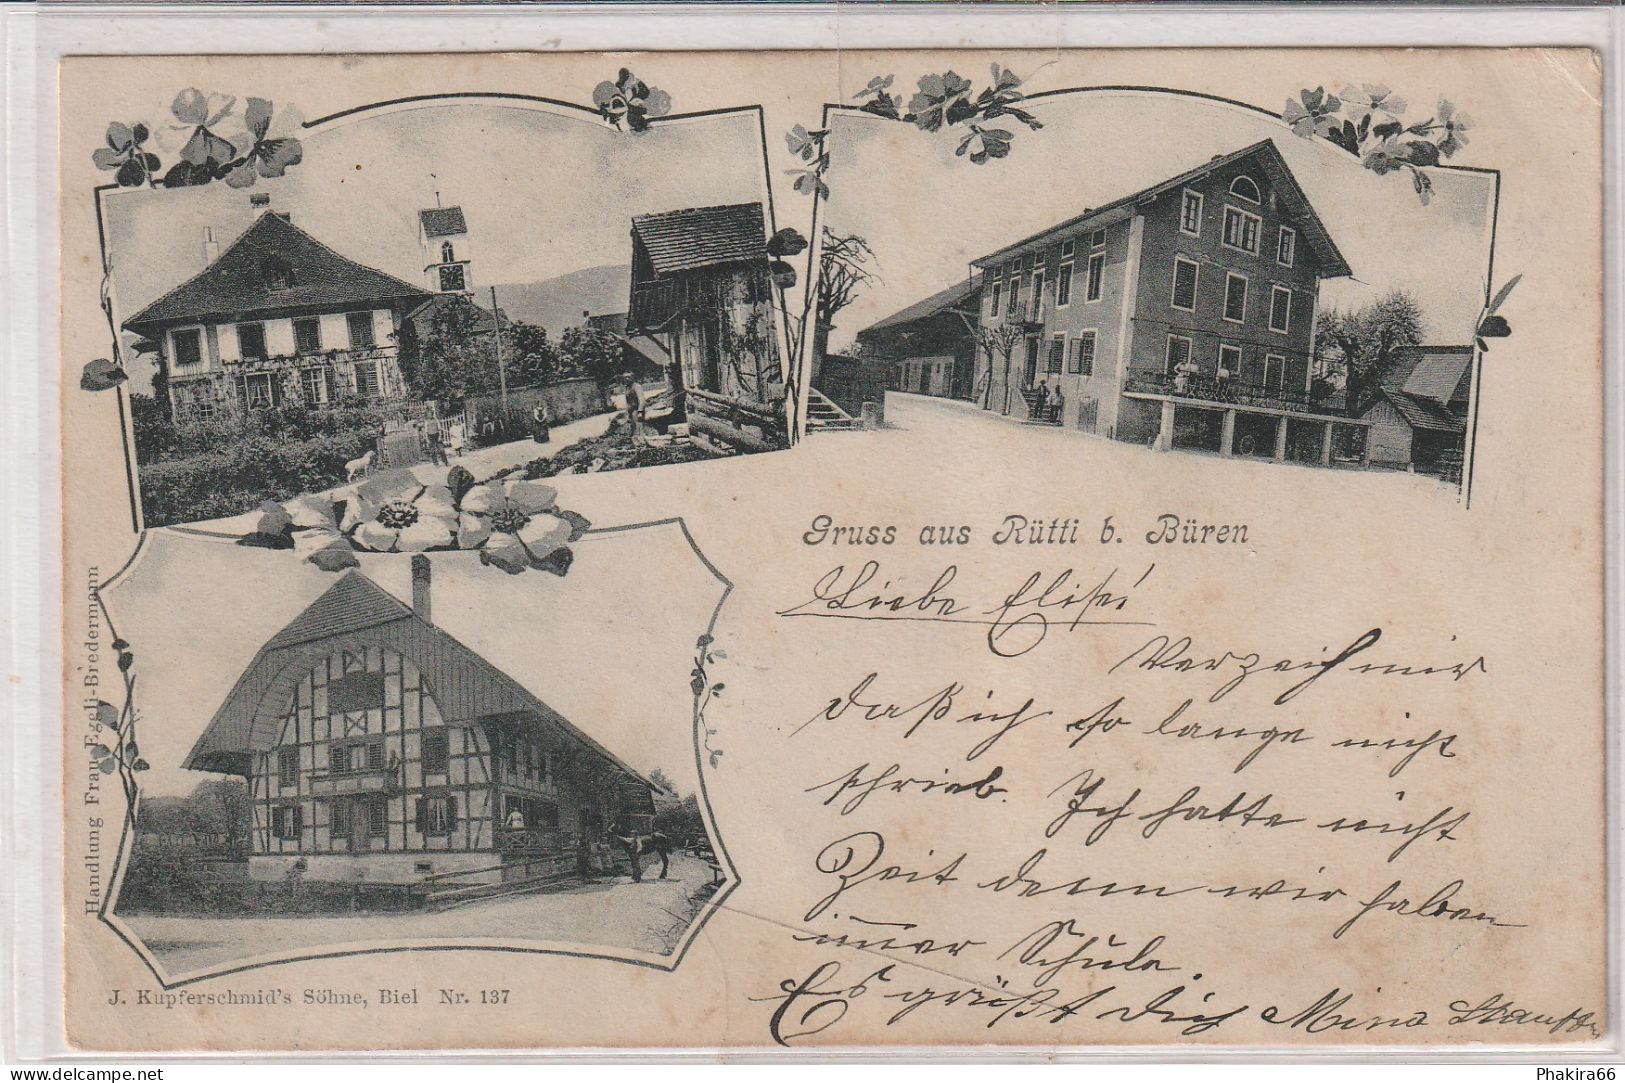 Gruss aus Rütti b. Büren
Liebe Elise!
Verzeih mir
daß ich so lange nicht
schrieb. Ich hatte nicht
Zeit denn wir haben
immer Schule.
Es grüßt Dich Mina
Handlung Frau Eggli-Bredermann
J. Kupferschmid's Söhne, Biel Nr. 137
www.delcampe.net
Phakira66